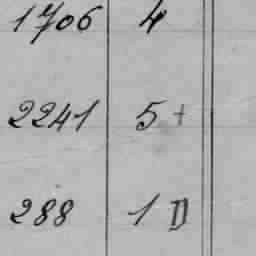 1706 4
2241 5 +
288 1 D